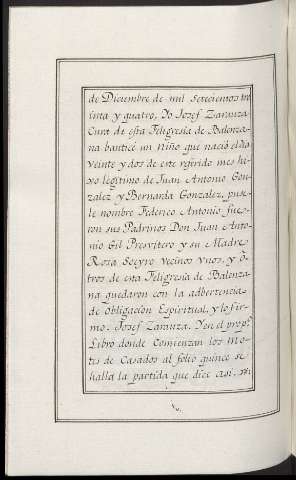 de Diciembre de mil setecientos tre
inta y quatro, Yo Josef Zarauza
Cura de esta Feligresia de Balonza-
na bauticé un Niño que nació el dia
veinte y dos de este referido mes hi-
xo legitimo de Juan Antonio Gon-
zalez y Bernarda Gonzalez, puse-
le nombre Federico Antonio, fue-
ron sus Padrinos Don Juan Anto-
nio Gil Presvitero y su Madre
Rosa Soeyro vecinos Vnos, y ô-
tros de esta Feligresia de Balonza-
na quedaron con la adbertencia
de obligacion Espiritual, y lo fir-
mo. Josef Zarauza. Y en el prop.º
Libro donde Comienzan los Mo-
tes de Casados al folio quince se
halla la partida que dice asi.